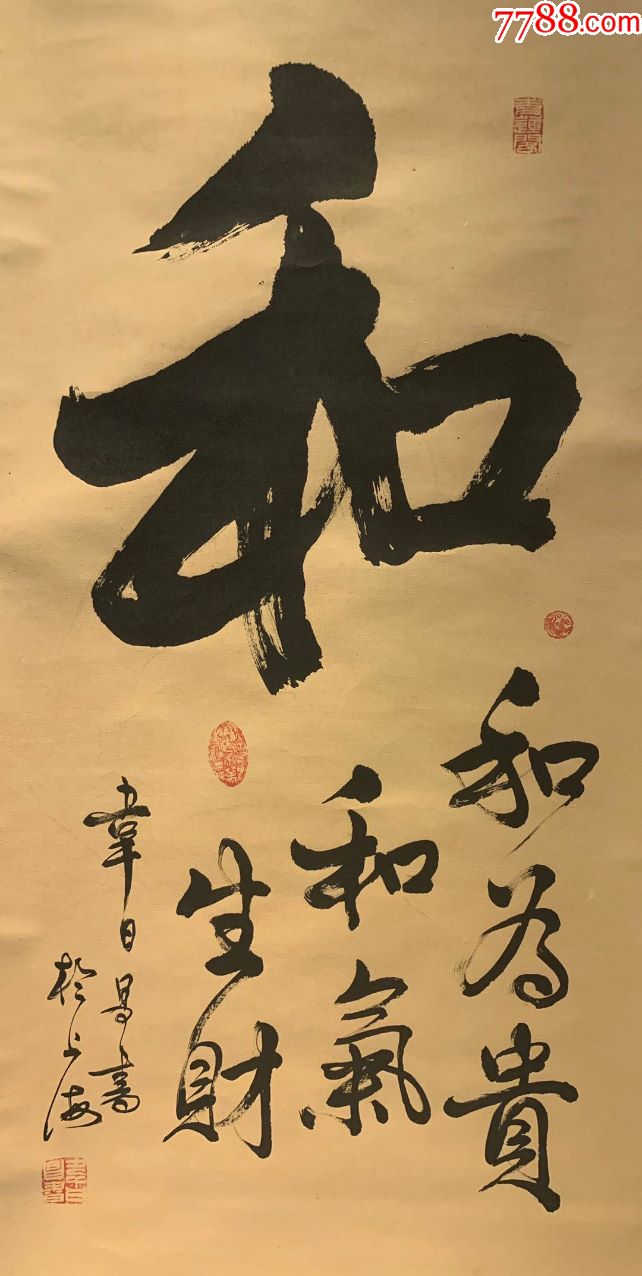 7788.com
和
和為貴
和氣
生財
韋日昌書
於上海